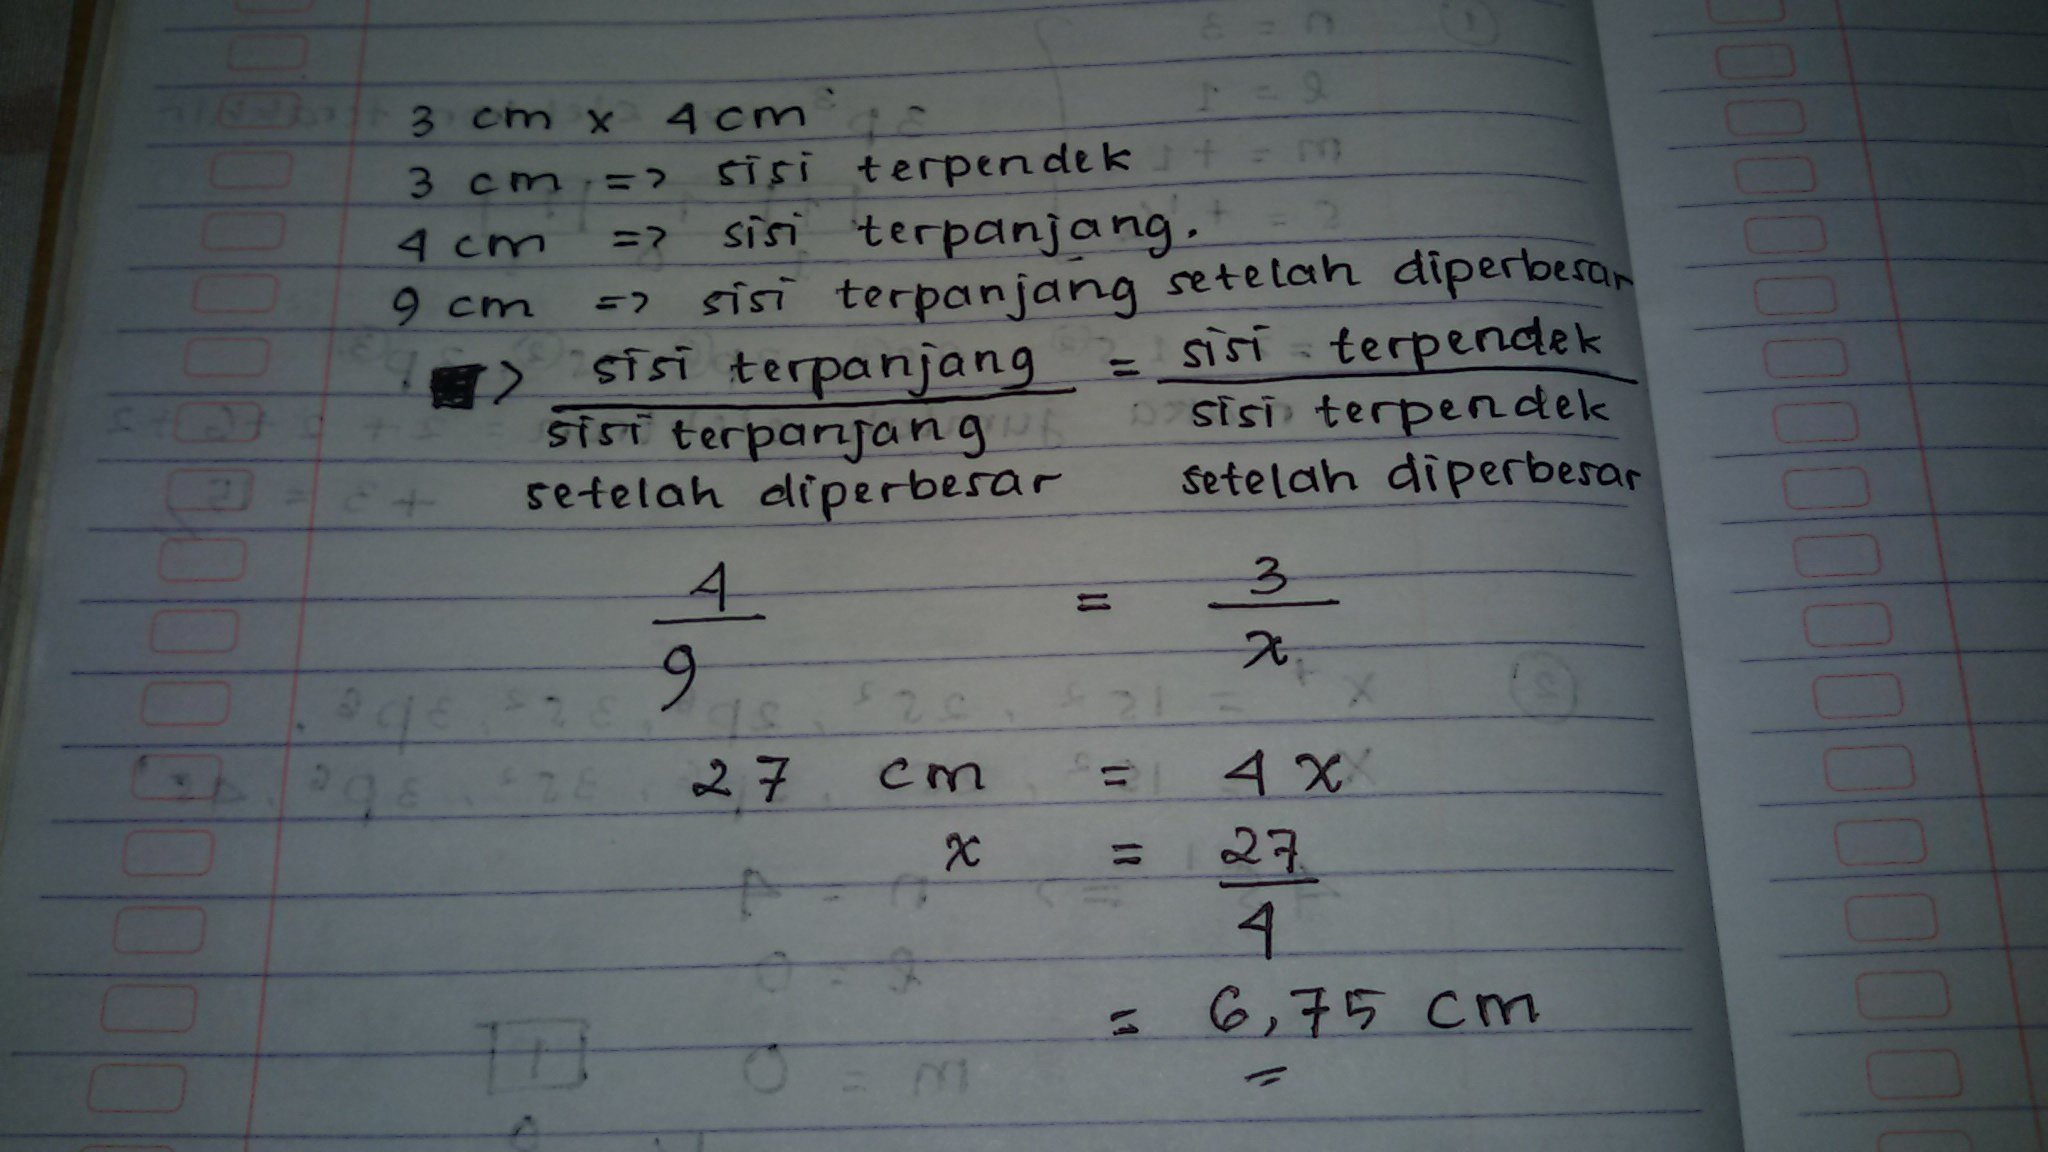 3 cm x 4 cm
3 cm => sisi terpendek
4 cm => sisi terpanjang.
9 cm => sisi terpanjang setelah diperbesar
> sisi terpanjang = sisi terpendek
sisi terpanjang sisi terpendek
setelah diperbesar setelah diperbesar
4 = 3
9 x
27 cm = 4x
x = 27
4
= 6,75 cm